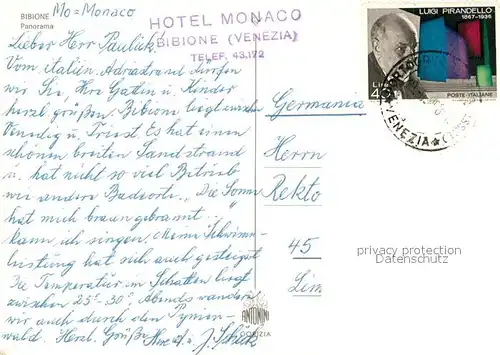 BIBIONE
Panorama
Mo = Monaco
HOTEL MONACO
BIBIONE (VENEZIA)
TELEF. 43.172
LUIGI PIRANDELLO
1867-1936
POSTE ITALIANE
VENEZIA
Lieber Herr Paulick!
Vom italien. Adriastrand dürfen
wir Sie, Ihre Gattin u. Kinder
herzl. grüßen. Bibione liegt zwischen
Venedig u. Triest. Es hat einen
schönen breiten Sandstrand
u. hat nicht so viel Betrieb
wie andere Badeorte. "Die Sonne
hat mich braun gebrannt...
kann ich singen. Meine Schwimm-
leistung hat sich auch gesteigert
Die Temperatur im Schatten liegt
zwischen 25°-30°. Abends wandern
wir auch durch den Pinien-
wald. Herzl. Grüße
Germania
Herrn
Rekto
45
privacy protection
Datenschutz
ANTONINI
GORIZIA